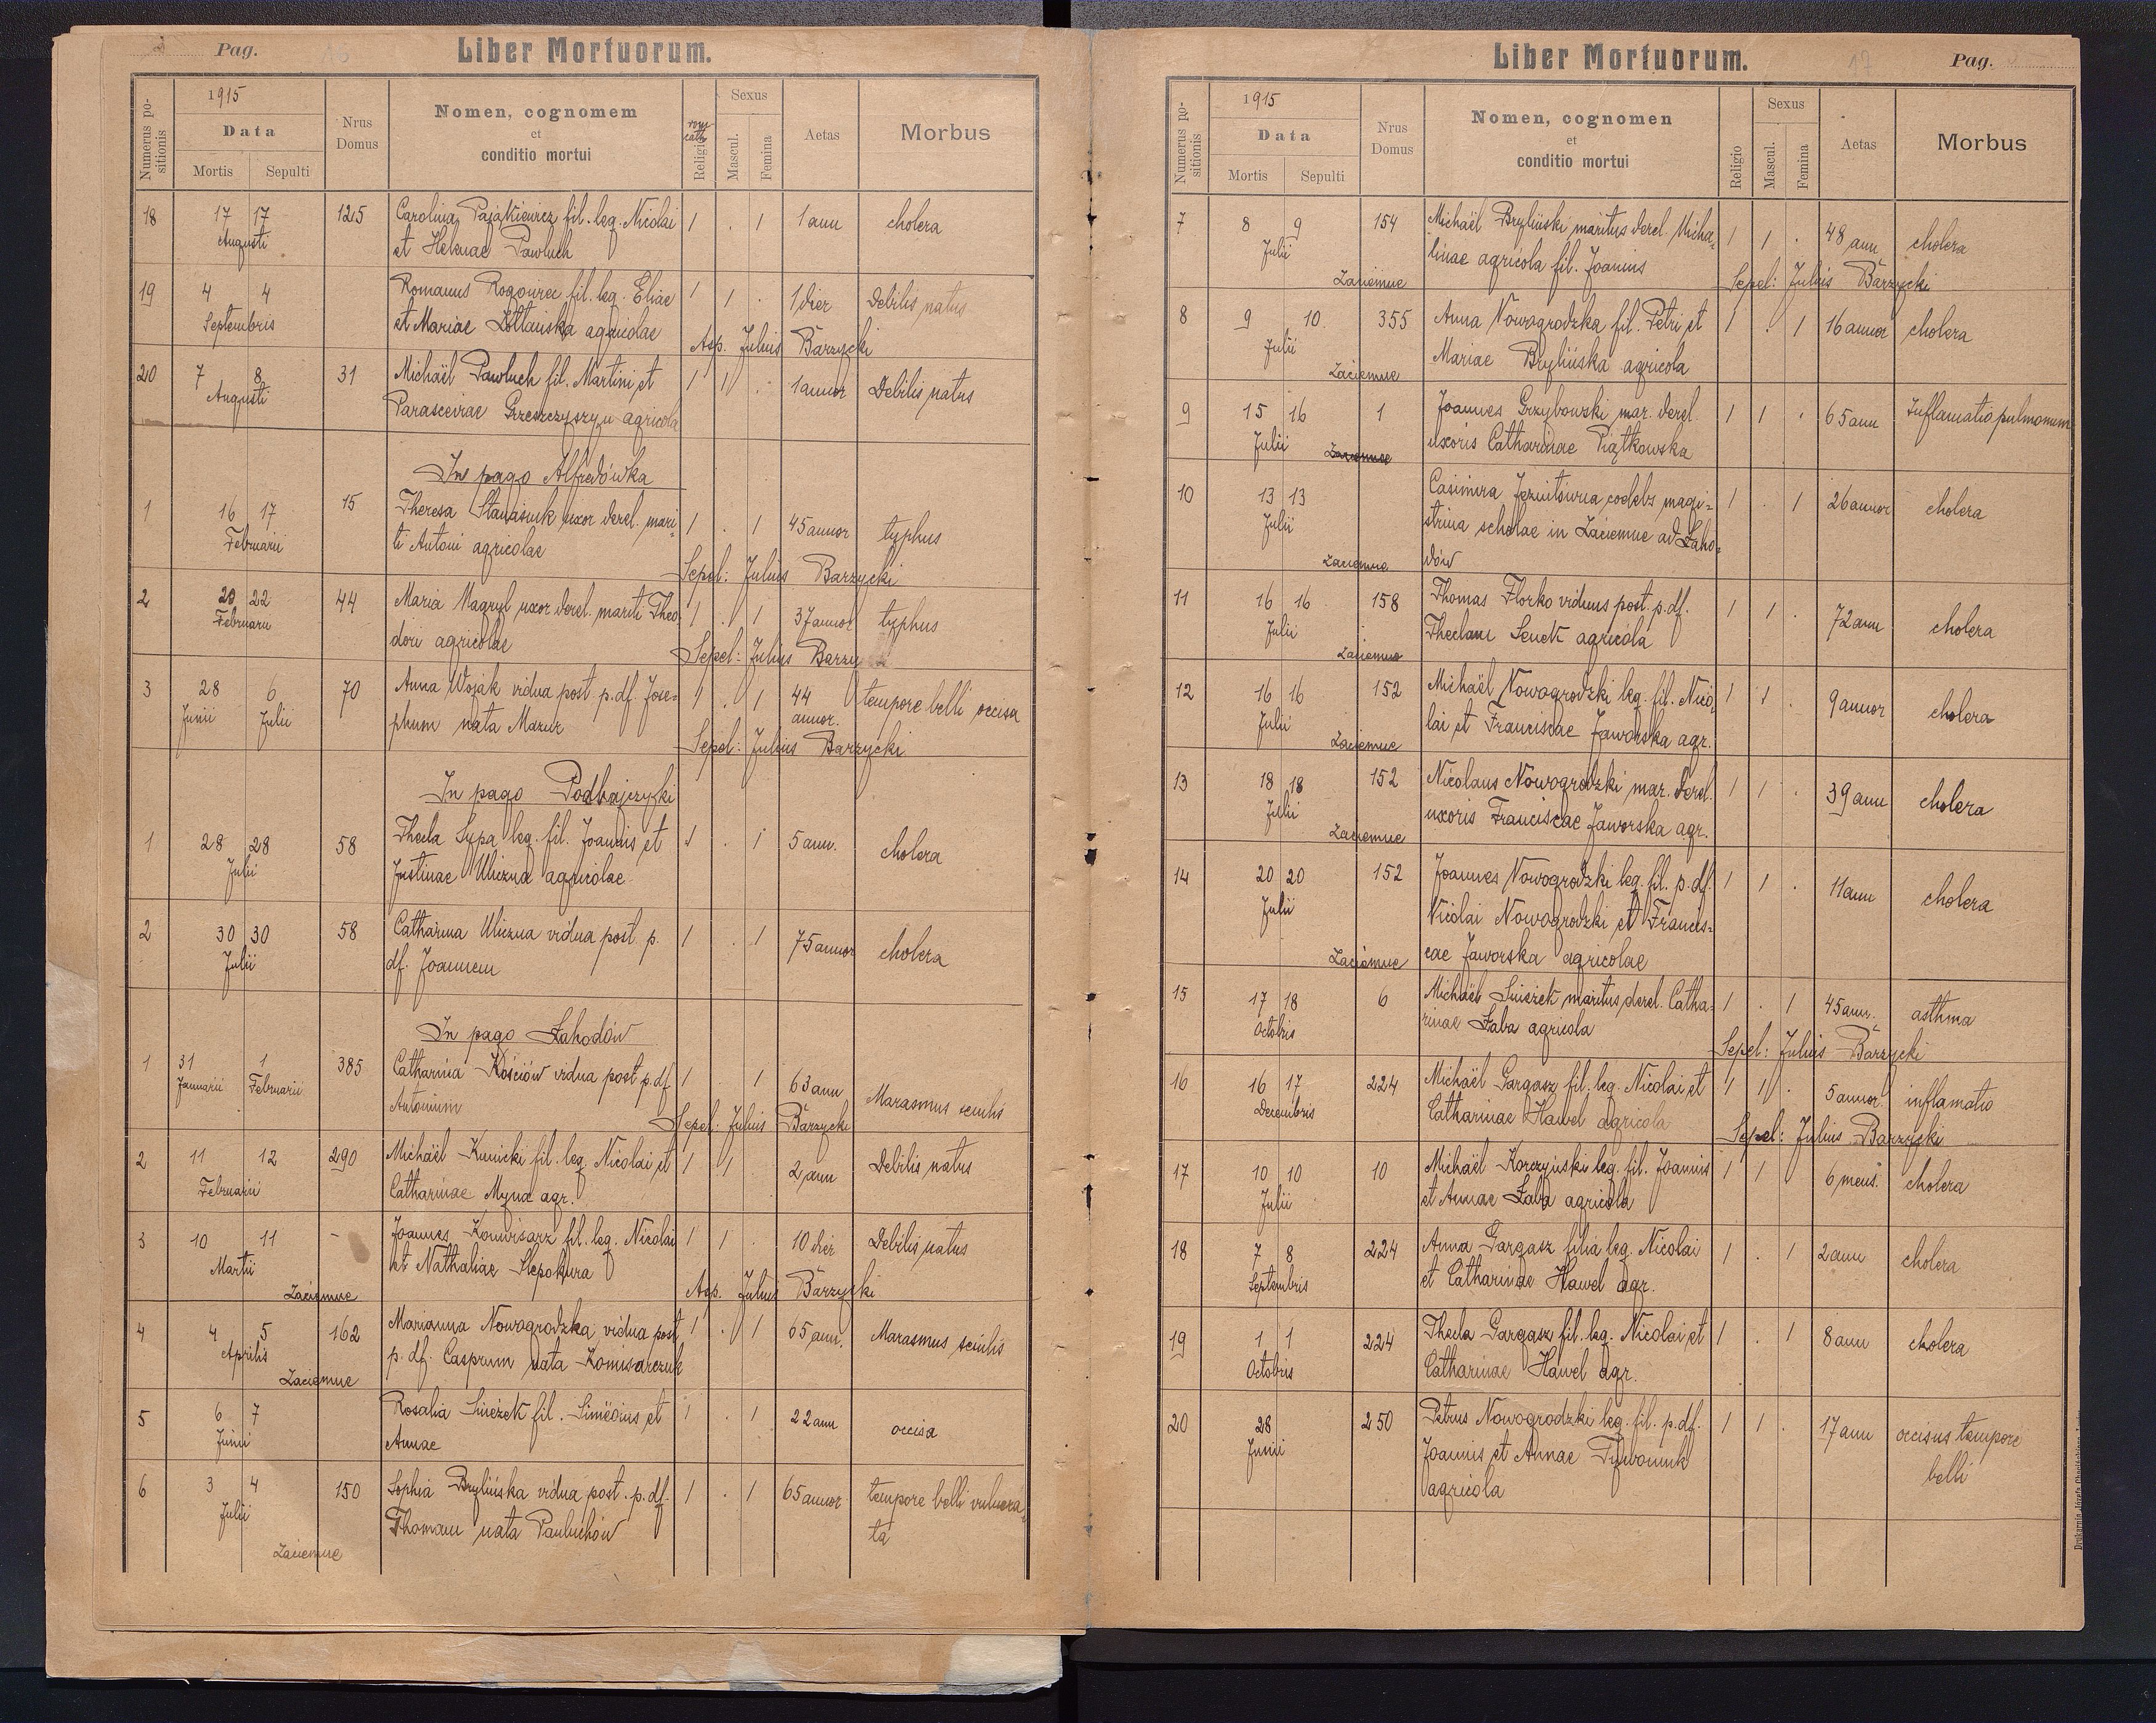 Pag.
Liber Mortuorum.
Numerus positionis
1915
Data
Mortis
Sepulti
Nrus Domus
Nomen, cognomem
et
conditio mortui
rom cath
Religio
Sexus
Mascul.
Femina
Aetas
Morbus
18 17 17 125 Carolina Pajakiewicz fil. leg. Nicolai 1 . 1 1 ann cholera
Augusti et Helenae Pawluch
19 4 4 Romanus Rogowiec fil. leg. Eliae 1 1 . 1 dier Debilis natus
Septembris et Mariae agricolae
Asp. Julius Barzycki
20 7 8 31 Michaël Pawluch fil. Martini et 1 1 . 1 annor Debilis natus
Augusti Parascevae Grzeszczyszyn agricola
In pago Alfredówka
1 16 17 15 Theresa Stanasiuk uxor derel. mari- 1 . 1 45 annor typhus
Februarii ti Antoni agricolae
Sepel: Julius Barzycki
2 20 22 44 Maria Magryl uxor derel. mariti Theo- 1 . 1 37 annor typhus
Februarii dori agricolae
Sepel: Julius Barzy
3 28 6 70 Anna Wojak vidua post p. df. Jose- 1 . 1 44 annor. tempore belli occisa
Junii Julii phum nata Mazur
Sepel: Julius Barzycki
In pago Podhajczyki
1 28 28 58 Thecla Sypa leg. fil. Joannis et 1 . 1 5 ann. cholera
Julii Justinae Uliczna agricolae
2 30 30 58 Catharina Uliczna vidua post p. 1 . 1 75 annor cholera
Julii df. Joannem
In pago Łahodów
1 31 1 385 Catharina Kościów vidua post p. df. 1 1 63 ann Marasmus senilis
Januarii Februarii Antonium
Sepel: Julius Barzycki
2 11 12 290 Michaël Kunicki fil. leg. Nicolai et 1 1 2 ann Debilis natus
Februarii Catharinae Myna agr.
3 10 11 - Joannes Komisarz fil. leg. Nicolai 1 1 . 10 dier Debilis natus
Martii et Nathaliae Slepokura
Zaciemne Asp. Julius Barzycki
4 4 5 162 Marianna Nowogrodzka vidua post 1 . 1 65 ann. Marasmus senilis
Aprilis p. df. Casprum nata Komisarczuk
Zaciemne
5 6 7 Rosalia Śnieżek fil. Simeonis et 1 . 1 22 ann occisa
Junii Annae
6 3 4 150 Sophia Brylińska vidua post. p. df. 1 . 1 65 annor tempore belli vulnera-
Julii Thomam nata Pauluchów ta
Zaciemne
Liber Mortuorum.
17
Pag.
Numerus positionis
1915
Data
Mortis
Sepulti
Nrus Domus
Nomen, cognomen
et
conditio mortui
Religio
Sexus
Mascul.
Femina
Aetas
Morbus
7 8 9 154 Michaël Bryliński maritus derel. Micha- 1 1 . 48 ann cholera
Julii linae agricola fil. Joannis
Zaciemne Sepel: Julius Barzycki
8 9 10. 355 Anna Nowogrodzka fil. Petri et 1 . 1 16 annor cholera
Julii Mariae Brylińska agricola
Zaciemne
9 15 16 1 Joannes Grzybowski mar. derel. 1 1 . 65 ann Inflamatio pulmonum
Julii uxoris Catharinae Piątkowska
Zaciemne
10 13 13 Casimira Jezuitówna coelebs magi- 1 . 1 26 annor cholera
Julii strina scholae in Zaciemne ad Łaho-
Zaciemne dów
11 16 16 158 Thomas Florko viduus post. p. df. 1 1 . 72 ann cholera
Julii Theclam Senek agricola
Zaciemne
12 16 16 152 Michaël Nowogrodzki leg. fil. Nico- 1 1 . 9 annor cholera
Julii lai et Franciscae Jaworska agr.
Zaciemne
13 18 18 152 Nicolaus Nowogrodzki mar. derel. 1 1 . 39 ann cholera
Julii uxoris Franciscae Jaworska agr.
Zaciemne
14 20 20 152 Joannes Nowogrodzki leg. fil. p. df. 1 1 . 11 ann cholera
Julii Nicolai Nowogrodzki et Francis-
Zaciemne cae Jaworska agricolae
15 17 18 6 Michaël Śnieżek maritus derel. Catha- 1 . 1 45 ann. asthma
Octobris rinae Żaba agricola
Sepel: Julius Barzycki
16 16 17 224 Michaël Gargasz fil. leg. Nicolai et 1 1 . 5 annor. inflamatio
Decembris Catharinae Hawel agricola
Sepel: Julius Barzycki
17 10 10 10 Michaël Korczyński leg. fil. Joannis 1 1 6 mens. cholera
Julii et Annae Żaba agricola
18 7 8 224 Anna Gargasz filia leg. Nicolai 1 . 1 2 ann cholera
Septembris et Catharinae Hawel agr.
19 1 1 224 Thecla Gargasz fil. leg. Nicolai et 1 . 1 8 ann cholera
Octobris Catharinae Hawel agr.
20 28 250 Petrus Nowogrodzki leg. fil. p. df. 1 1 . 17 ann occisus tempore
Junii Joannis et Annae Tywoniuk belli
agricola